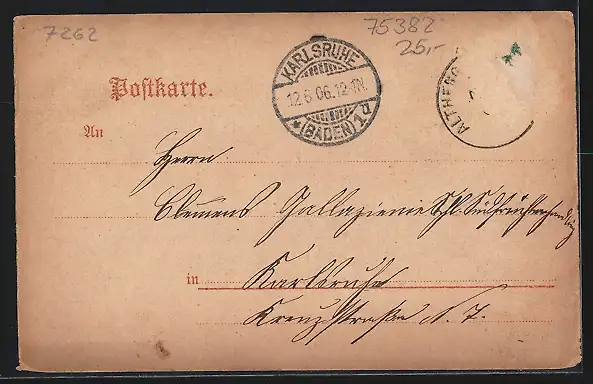 7262
75382
25,-
KARLSRUHE
12.6.06.12-1N.
*(BADEN)1d
ALTHENG
Postkarte.
An
Herrn
Clemens
in Karlsruhe
Kreuzstraße N. 7.